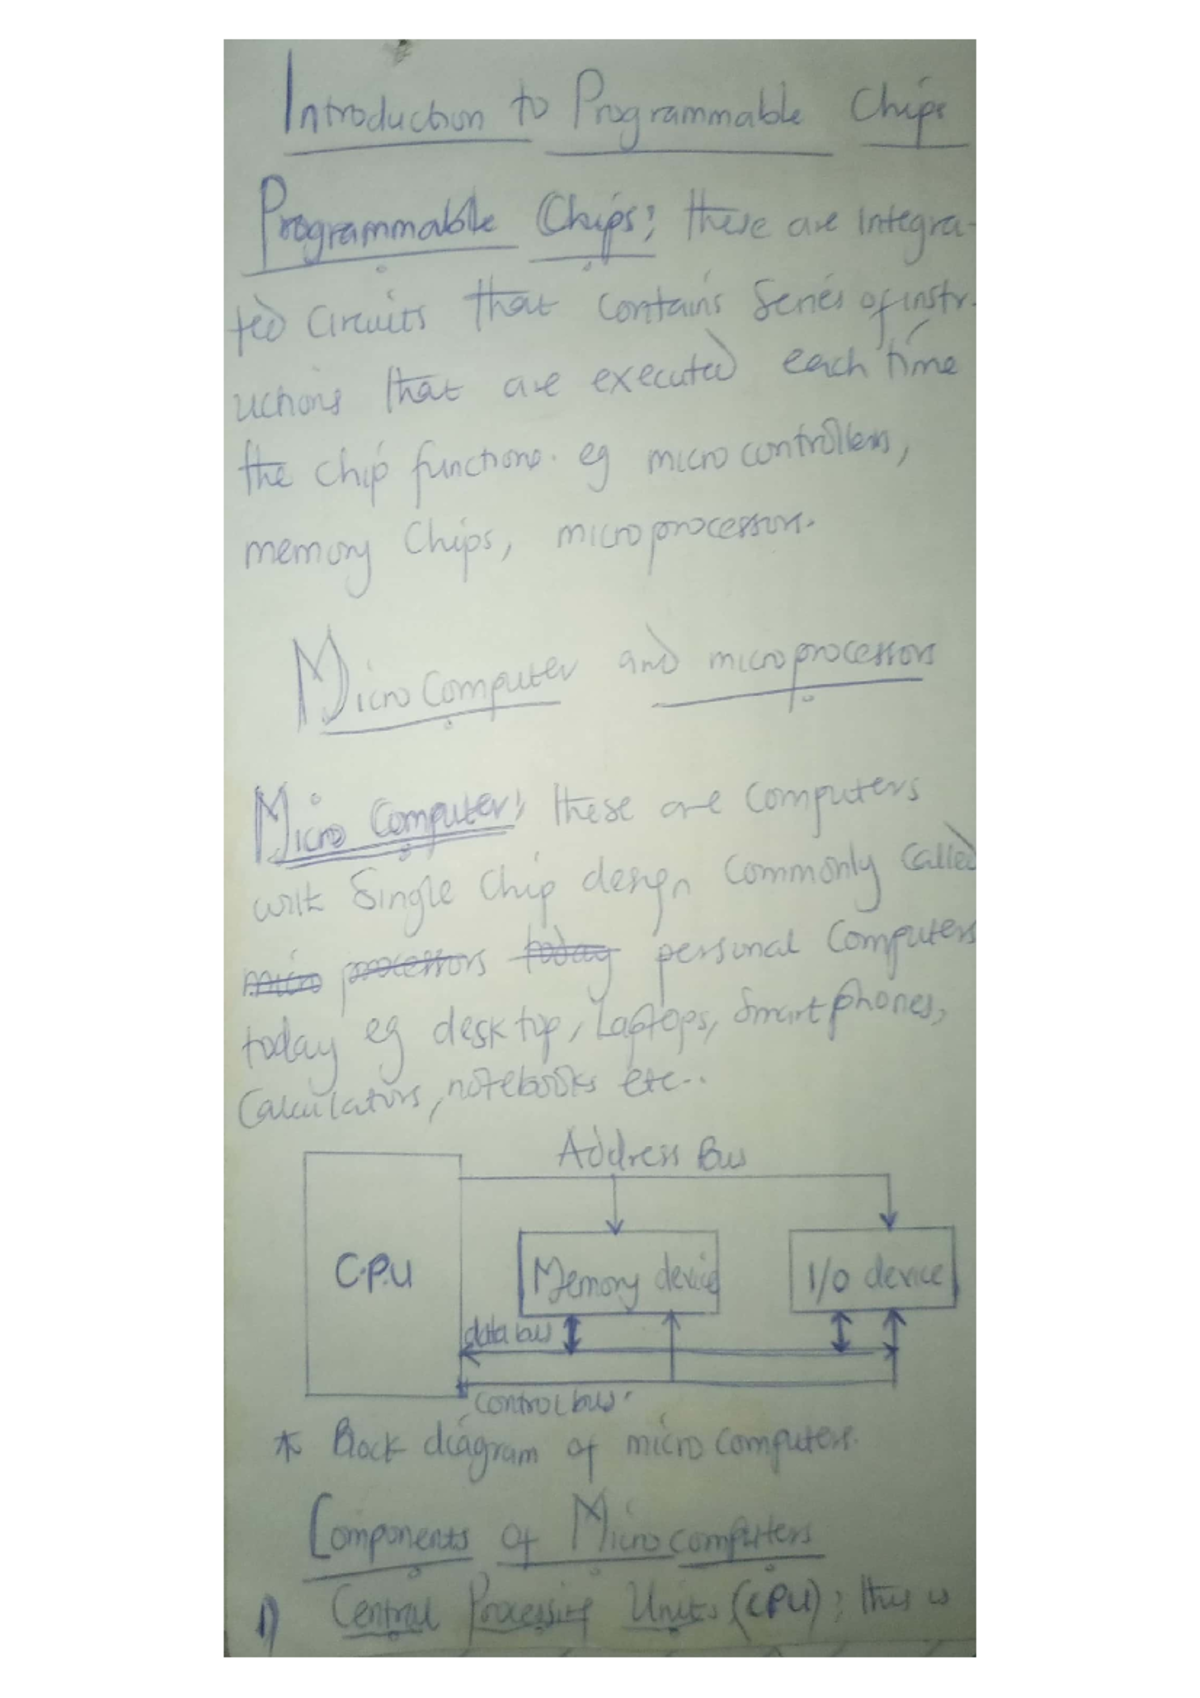 Introduction to Programmable Chips
Programmable Chips: these are integra-
ted circuits that contains series of instr-
uctions that are executed each time
the chip functions. eg micro controllers,
memory Chips, microprocessors.
Micro Computer and microprocessors
Micro Computer: these are computers
with Single Chip design Commonly Called
micro processors today personal Computers
today eg desktop, Laptops, Smart phones,
Calculators, notebooks etc..
Address Bus
C.P.U
Memory device
I/O device
data bus
Control bus
* Block diagram of micro computers.
Components of Micro computers
1) Central Processing Units (CPU); this is